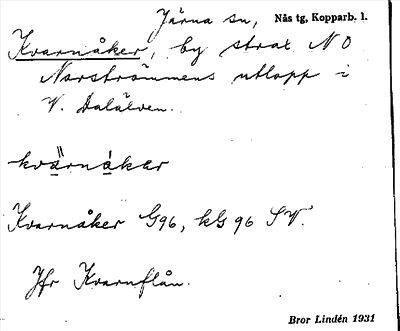 Järna sn, Nås tg, Kopparb. l.
Kvarnåker, by strax N O
Norströmmens utlopp i
V. Dalälven.
kvä̀rnákar
Kvarnåker G96, kG 96 SV.
Jfr Kvarnflån.
Bror Lindén 1931